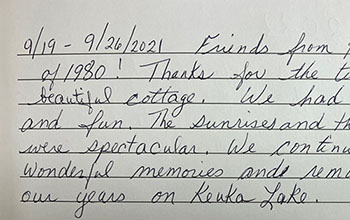 9/19 - 9/26/2021 Friends from
of 1980! Thanks for the
beautiful cottage. We had
and fun. The sunrises and
were spectacular. We
wonderful memories and
our years on Keuka Lake.